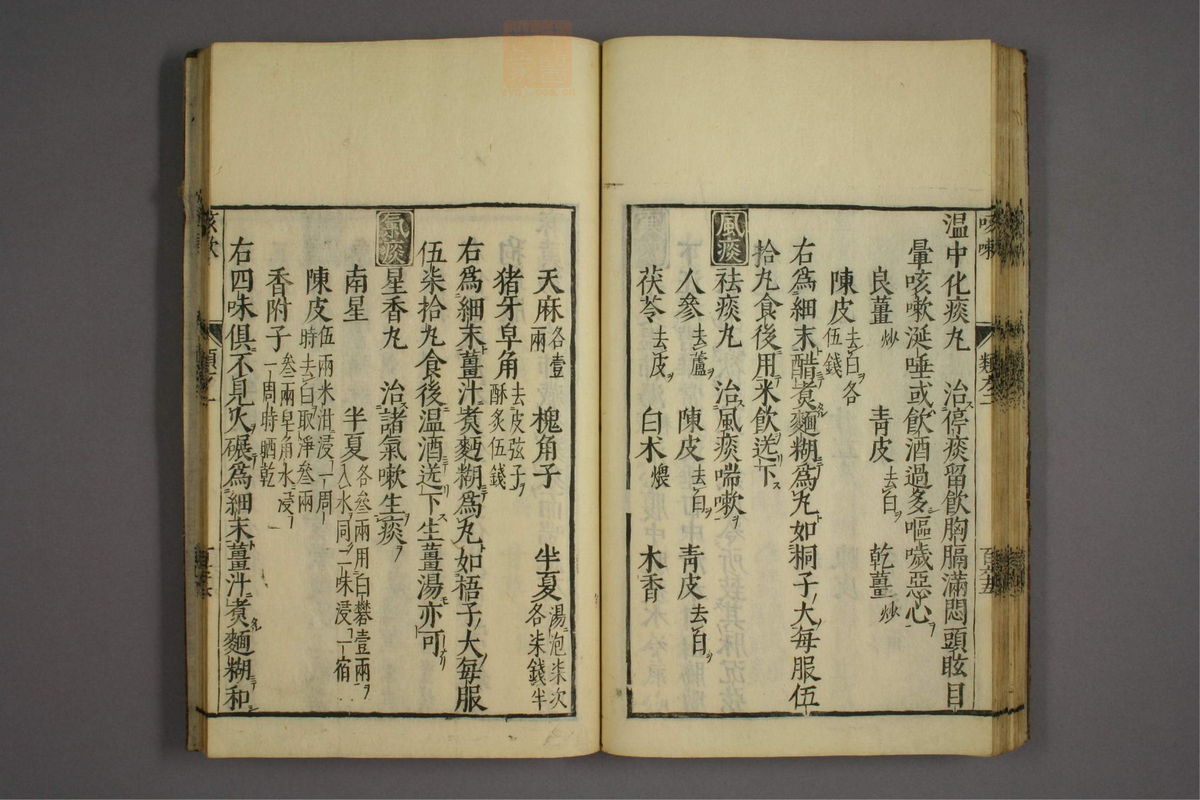 温中化痰丸　治停痰留飲胸膈滿悶頭眩目
暈咳嗽涎唾或飲酒過多嘔噦惡心
良薑炒　青皮去白　乾薑炒
陳皮去白各伍錢
右爲細末醋煮麵糊爲丸如桐子大每服伍
拾丸食後用米飲送下
風痰
祛痰丸　治風痰喘嗽
人參去蘆　陳皮去白　青皮去白
茯苓去皮　白术煨　木香
天麻各壹兩　槐角子　半夏湯泡柒次各柒錢半
猪牙皁角去皮弦子酥炙伍錢
右爲細末薑汁煮麪糊爲丸如梧子大每服
伍柒拾丸食後温酒送下生薑湯亦可
氣痰
星香丸　治諸氣嗽生痰
南星　半夏各叁兩用白礬壹兩入水同二味浸一宿
陳皮伍兩米泔浸一周時去白取淨叁兩
香附子叁兩皁角水浸一周時晒乾
右四味俱不見火碾爲細末薑汁煮麵糊和
咳嗽